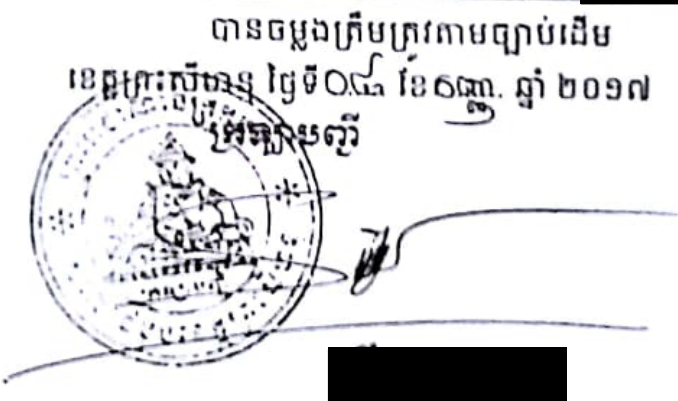 បានចម្លងត្រឹមត្រូវតាមច្បាប់ដើម
ខេត្តព្រះសីហនុ ថ្ងៃទី០៤ ខែ កញ្ញា ឆ្នាំ ២០១៧
ក្រឡាបញ្ជី